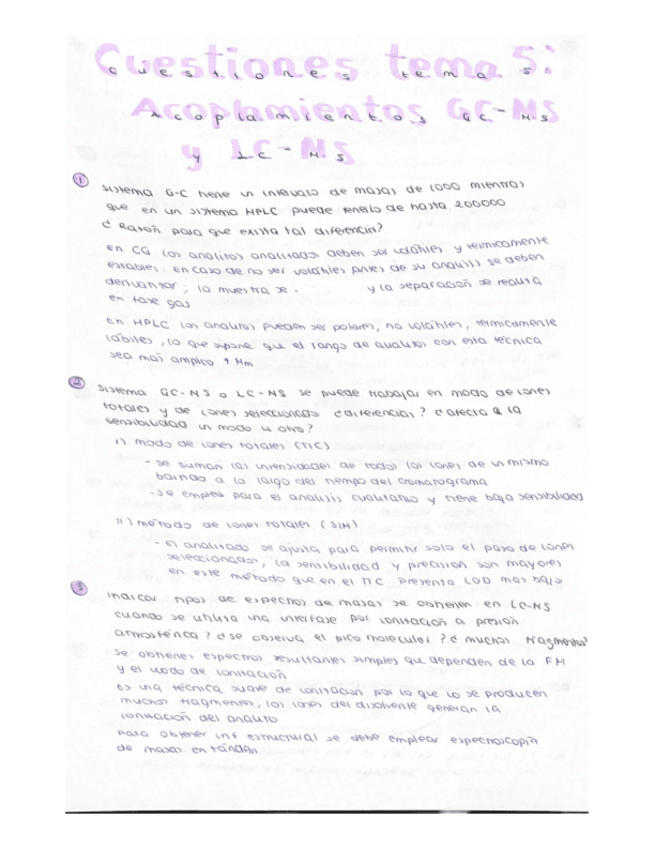 Cuestiones tema 5:
Acoplamientos GC-MS
y LC-MS
1 Sistema G-C tiene un intervalo de masas de 1000 mientras
que en un sistema HPLC puede tenerlo de hasta 200000
¿ Razón para que exista tal diferencia?
En CG los analitos analizados deben ser volátiles y térmicamente
estables. En caso de no ser volátiles antes de su análisis se deben
derivatizar; la muestra se . y la separación se realiza
en fase gas
En HPLC los analitos pueden ser polares, no volátiles, térmicamente
lábiles, lo que supone que el rango de analitos con esta técnica
sea más amplio ↑ Mm
2 Sistema GC-MS o LC-MS se puede trabajar en modo de iones
totales y de iones seleccionados ¿diferencias? ¿afecta a la
sensibilidad un modo u otro?
i) modo de iones totales (TIC)
- se suman las intensidades de todos los iones de un mismo
barrido a lo largo del tiempo del cromatograma
- se emplea para el análisis cualitativo y tiene baja sensibilidad
ii) método de iones totales (SIM)
- El analizado se ajusta para permitir solo el paso de iones
seleccionados, la sensibilidad y precisión son mayores
en este método que en el TIC presenta LOD más bajo
3 Indicar tipos de espectros de masas se obtienen en LC-MS
cuando se utiliza una interfase por ionización a presión
atmosférica? ¿se observa el pico molecular? ¿ muchos fragmentos?
se obtienes espectros resultantes simples que dependen de la FM
y el modo de ionización
Es una técnica suave de ionización por lo que no se producen
muchos fragmentos, los iones del disolvente generan la
ionización del analito
para obtener inf estructural se debe emplear espectroscopía
de masas en tándan